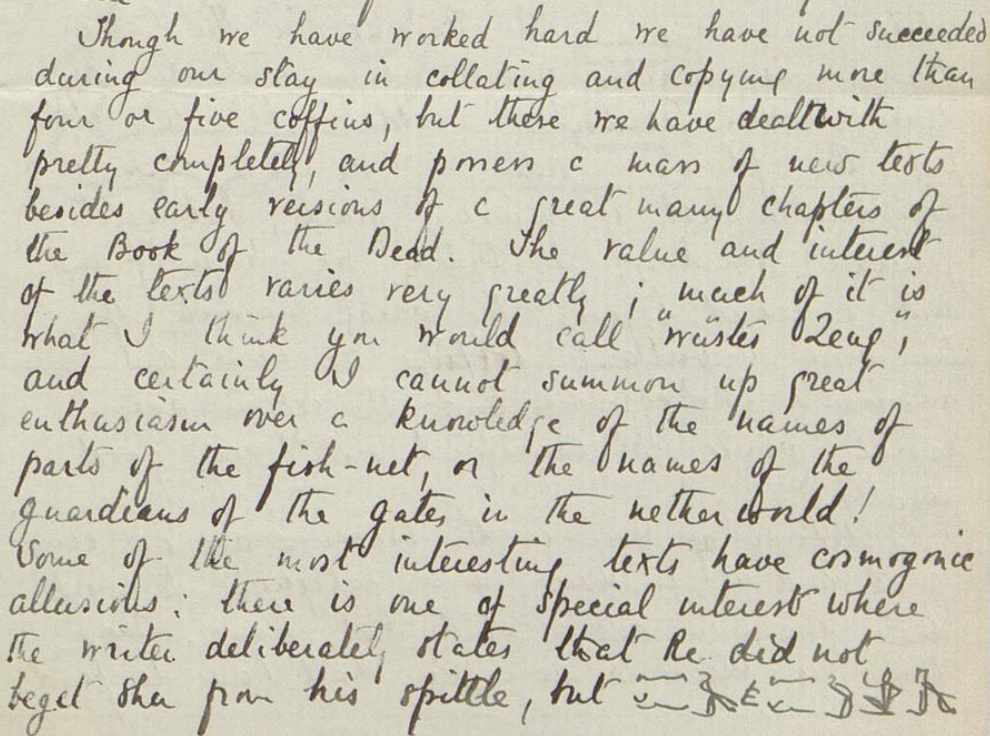 Though we have worked hard we have not succeeded
during our stay in collating and copying more than
four or five coffins, but these we have dealt with
pretty completely, and possess a mass of new texts
besides early versions of a great many chapters of
the Book of the Dead. The value and interest
of the texts varies very greatly; much of it is
what I think you would call "wüstes Zeug",
and certainly I cannot summon up great
enthusiasm over a knowledge of the names of
parts of the fish-net, or the names of the
guardians of the gates in the netherworld!
Some of the most interesting texts have cosmogonic
allusions: there is one of special interest where
the writer deliberately states that Re did not
beget Shu from his spittle, but